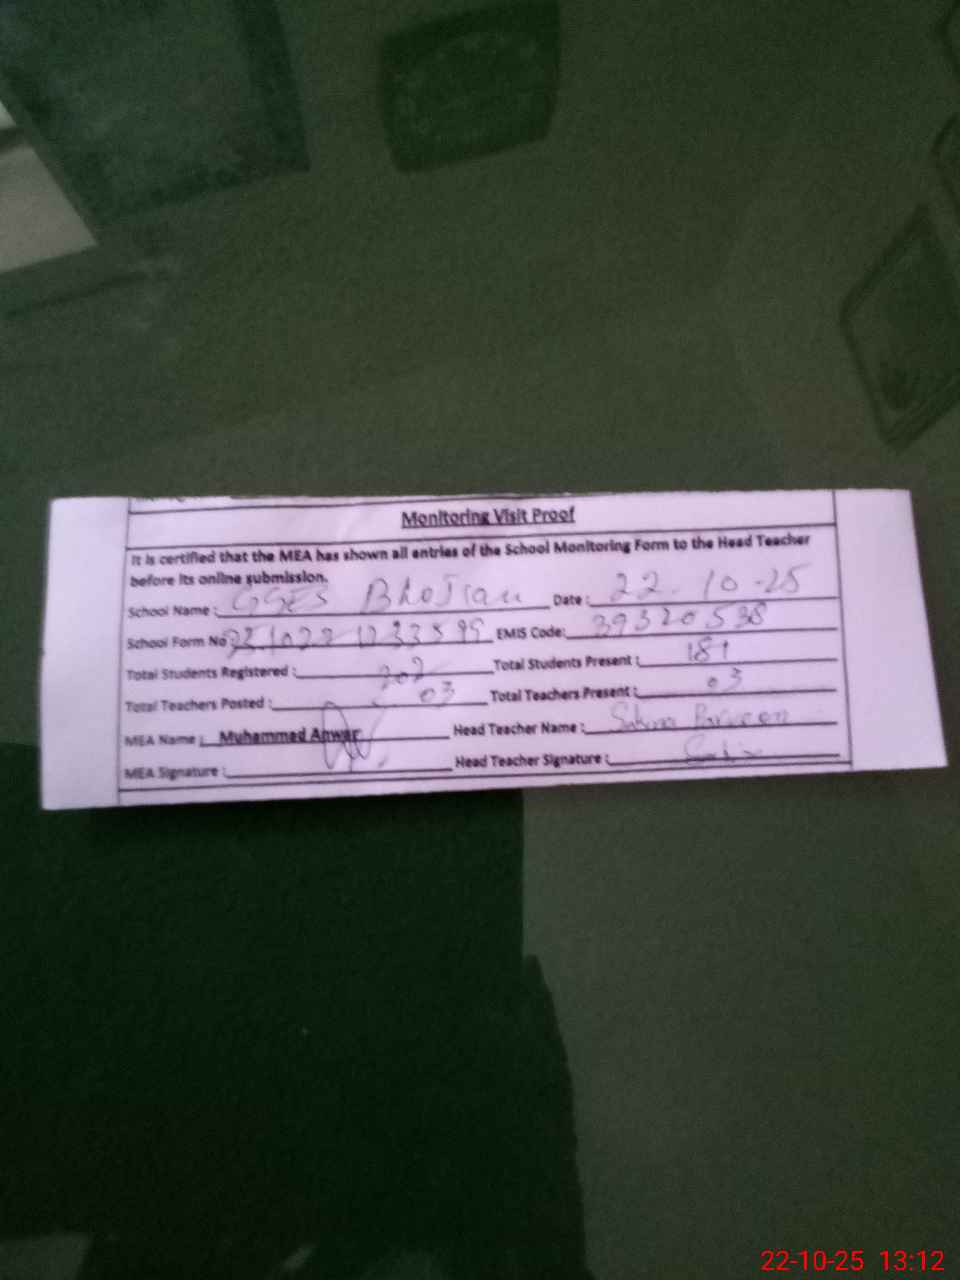 Monitoring Visit Proof
It is certified that the MEA has shown all entries of the School Monitoring Form to the Head Teacher
before its online submission.
School Name : GGES Bhojran Date : 22-10-25
School Form No : EMIS Code: 39320538
Total Students Registered : 202 Total Students Present : 181
Total Teachers Posted : 03 Total Teachers Present : 03
MEA Name : Muhammad Anwar Head Teacher Name : Sakina Parveen
MEA Signature : Head Teacher Signature :
22-10-25 13:12